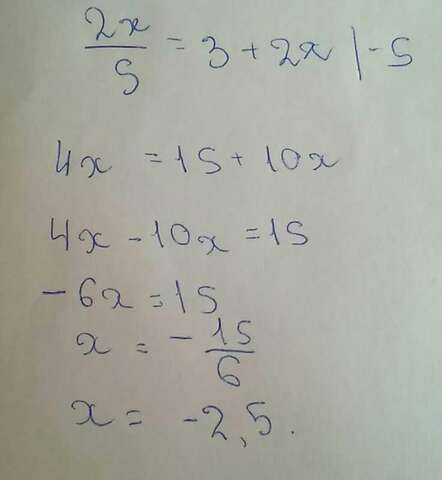 2x/5 = 3 + 2x |-5
4x = 15 + 10x
4x - 10x = 15
- 6x = 15
x = - 15/6
x = - 2,5.